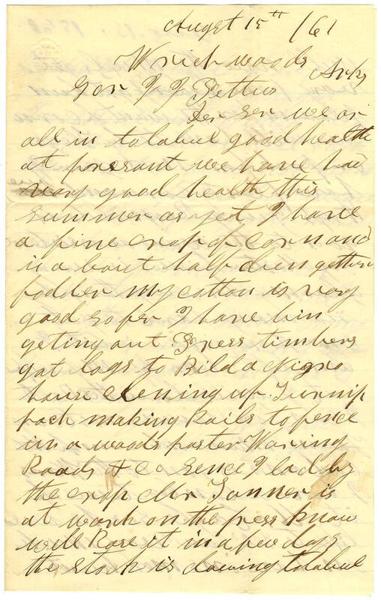 Augst 15th /61
Wrich woods Arks
Gov J J Pettus
Der Ser we ar
all in tolabul good health
at presant we have had
very good health this
summer as yet I have
a fine crop of corn and
in a bout half dun geting
fodder my cotton is very
good so fer I have bin
geting out Press timbers
gat logs to Bild a Nigro
house clening up Turnip
pach making Rails to fence
in a woods paster Waring
Roads & co sence I lad by
the crop Mr Tanner is
at work on the press know
will Rase it in a few days
the stock is dowing tolabul